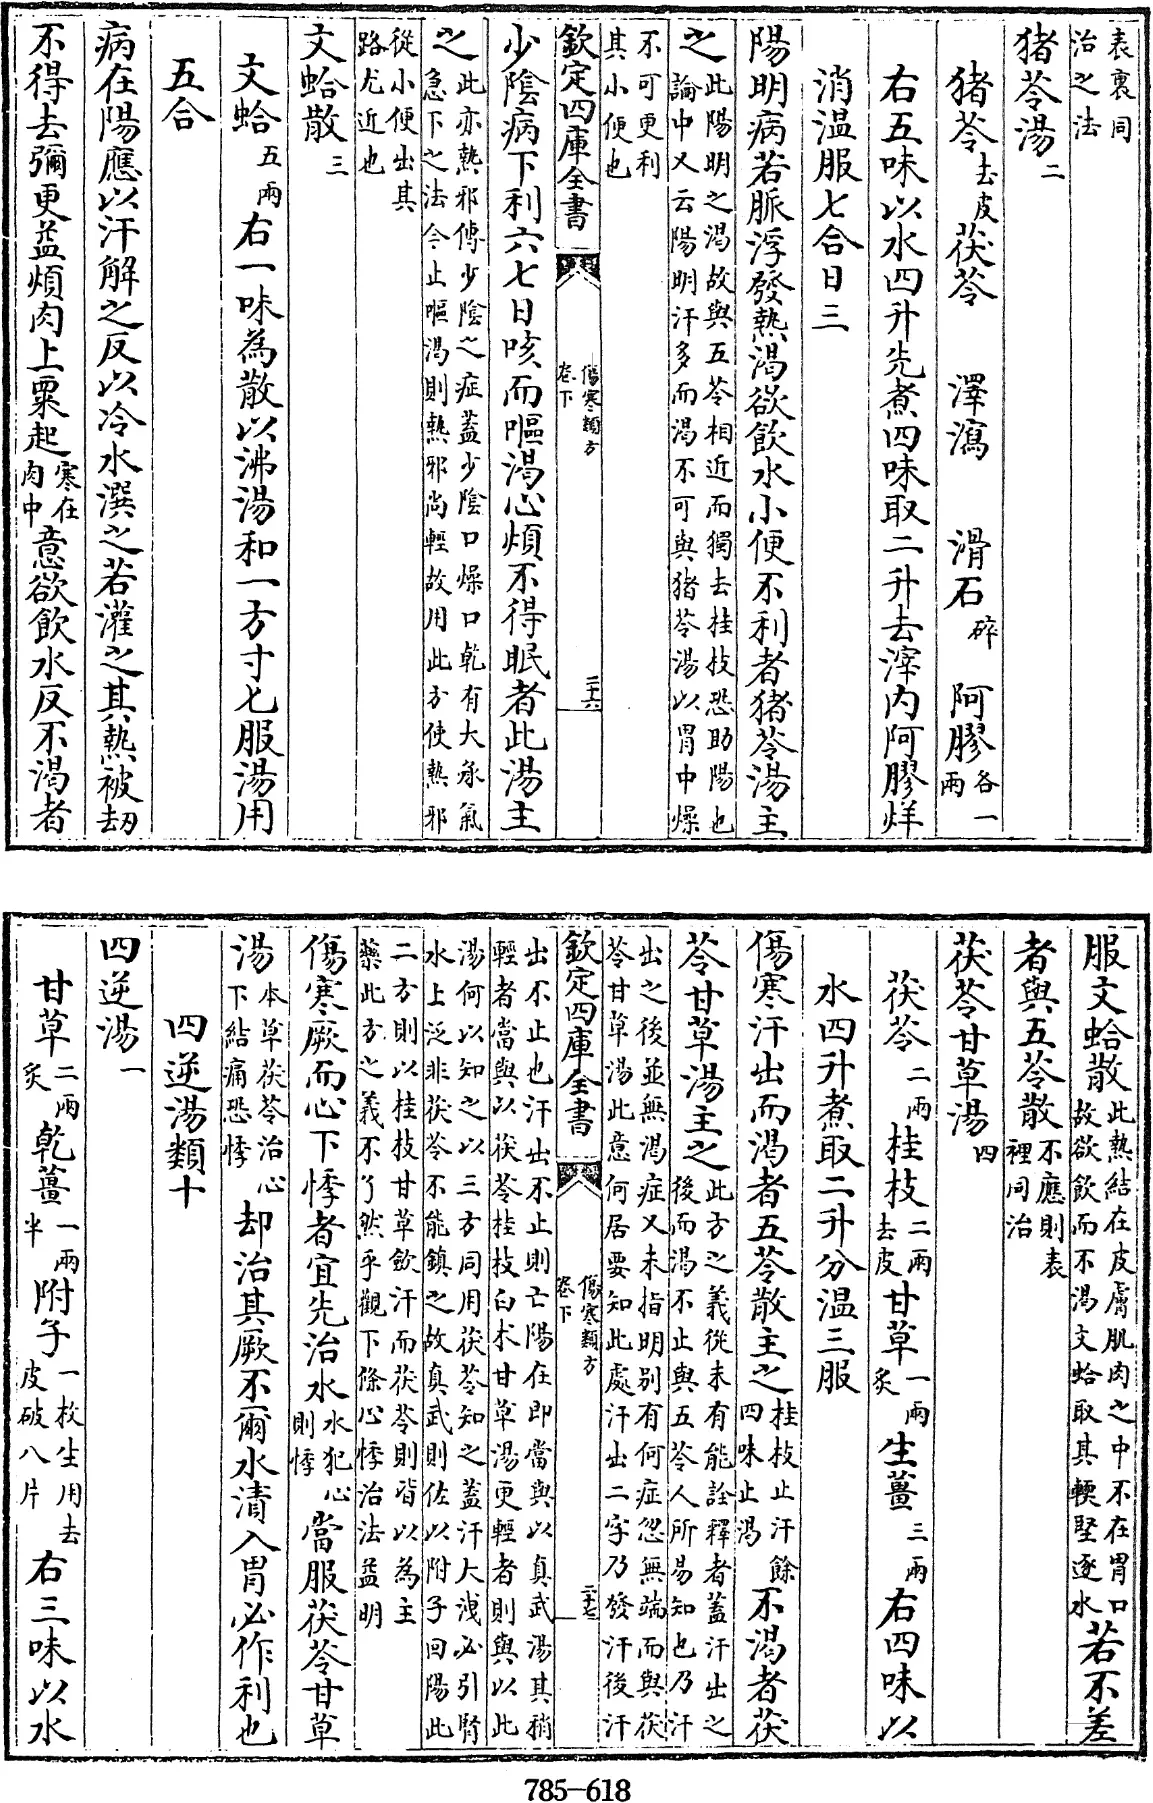 表裏同
治之法
猪苓湯二
猪苓去皮茯苓　澤瀉　滑石碎　阿膠各一兩
右五味以水四升先煮四味取二升去滓内阿膠烊
消温服七合日三
陽明病若脈浮發熱渴欲飲水小便不利者猪苓湯主
之此陽明之渴故與五苓相近而獨去桂枝恐助陽也
論中又云陽明汗多而渴不可與猪苓湯以胃中燥
不可更利
其小便也
欽定四庫全書　傷寒類方卷下　二十六
少陰病下利六七日咳而嘔渴心煩不得眠者此湯主
之此亦熱邪傳少陰之症蓋少陰口燥口乾有大承氣
急下之法今止嘔渴則熱邪尚輕故用此方使熱邪
從小便出其
路尤近也
文蛤散三
文蛤五兩右一味為散以沸湯和一方寸匕服湯用
五合
病在陽應以汗解之反以冷水潠之若灌之其熱被刼
不得去彌更益煩肉上粟起寒在肉中意欲飲水反不渴者
服文蛤散此熱結在皮膚肌肉之中不在胃口
故欲飲而不渴文蛤取其輭堅逐水若不差
者與五苓散不應則表
裡同治
茯苓甘草湯四
茯苓二兩桂枝二兩去皮甘草一兩炙生薑三兩右四味以
水四升煮取二升分温三服
傷寒汗出而渴者五苓散主之桂枝止汗餘四味止渴不渴者茯
苓甘草湯主之此方之義從未有能詮釋者蓋汗出之
後而渴不止與五苓人所易知也乃汗
出之後並無渴症又未指明别有何症忽無端而與茯
苓甘草湯此意何居要知此處汗出二字乃發汗後汗
欽定四庫全書　傷寒類方卷下　二十七
出不止也汗出不止則亡陽在即當與以真武湯其稍
輕者當與以茯苓桂枝白术甘草湯更輕者則與以此
湯何以知之以三方同用茯苓知之蓋汗大洩必引腎
水上泛非茯苓不能鎮之故真武則佐以附子回陽此
二方則以桂枝甘草斂汗而茯苓則皆以為主
藥此方之義不了然乎觀下條心悸治法益明
傷寒厥而心下悸者宜先治水水犯心則悸當服茯苓甘草
湯本草茯苓治心下結痛恐悸却治其厥不爾水漬入胃必作利也
四逆湯類十
四逆湯一
甘草二兩炙乾薑一兩半附子一枚生用去皮破八片右三味以水
785-618